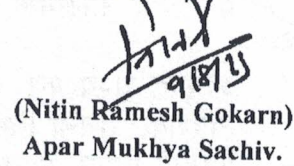 9/8/23
(Nitin Ramesh Gokarn)
Apar Mukhya Sachiv.